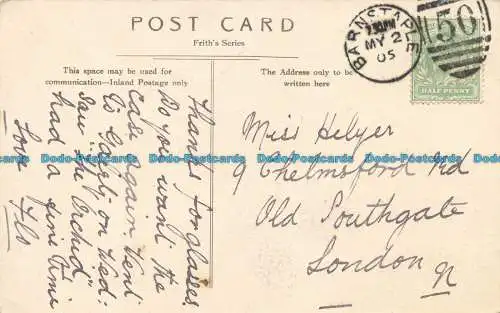 POST CARD
Frith's Series
This space may be used for
communication—Inland Postage only
The Address only to be
written here
BARNSTAPLE
7.30PM
MY 2
05
150
HALF PENNY
Thanks for glasses
Do you want the
case again. Went
to on Wed:
saw "The Orchid"
had a fine time
Love Flo
Miss Helyer
9 Chelmsford Rd
Old Southgate
London
N
Dodo-Postcards Dodo-Postcards Dodo-Postcards Dodo-Postcards Dodo-Postcards